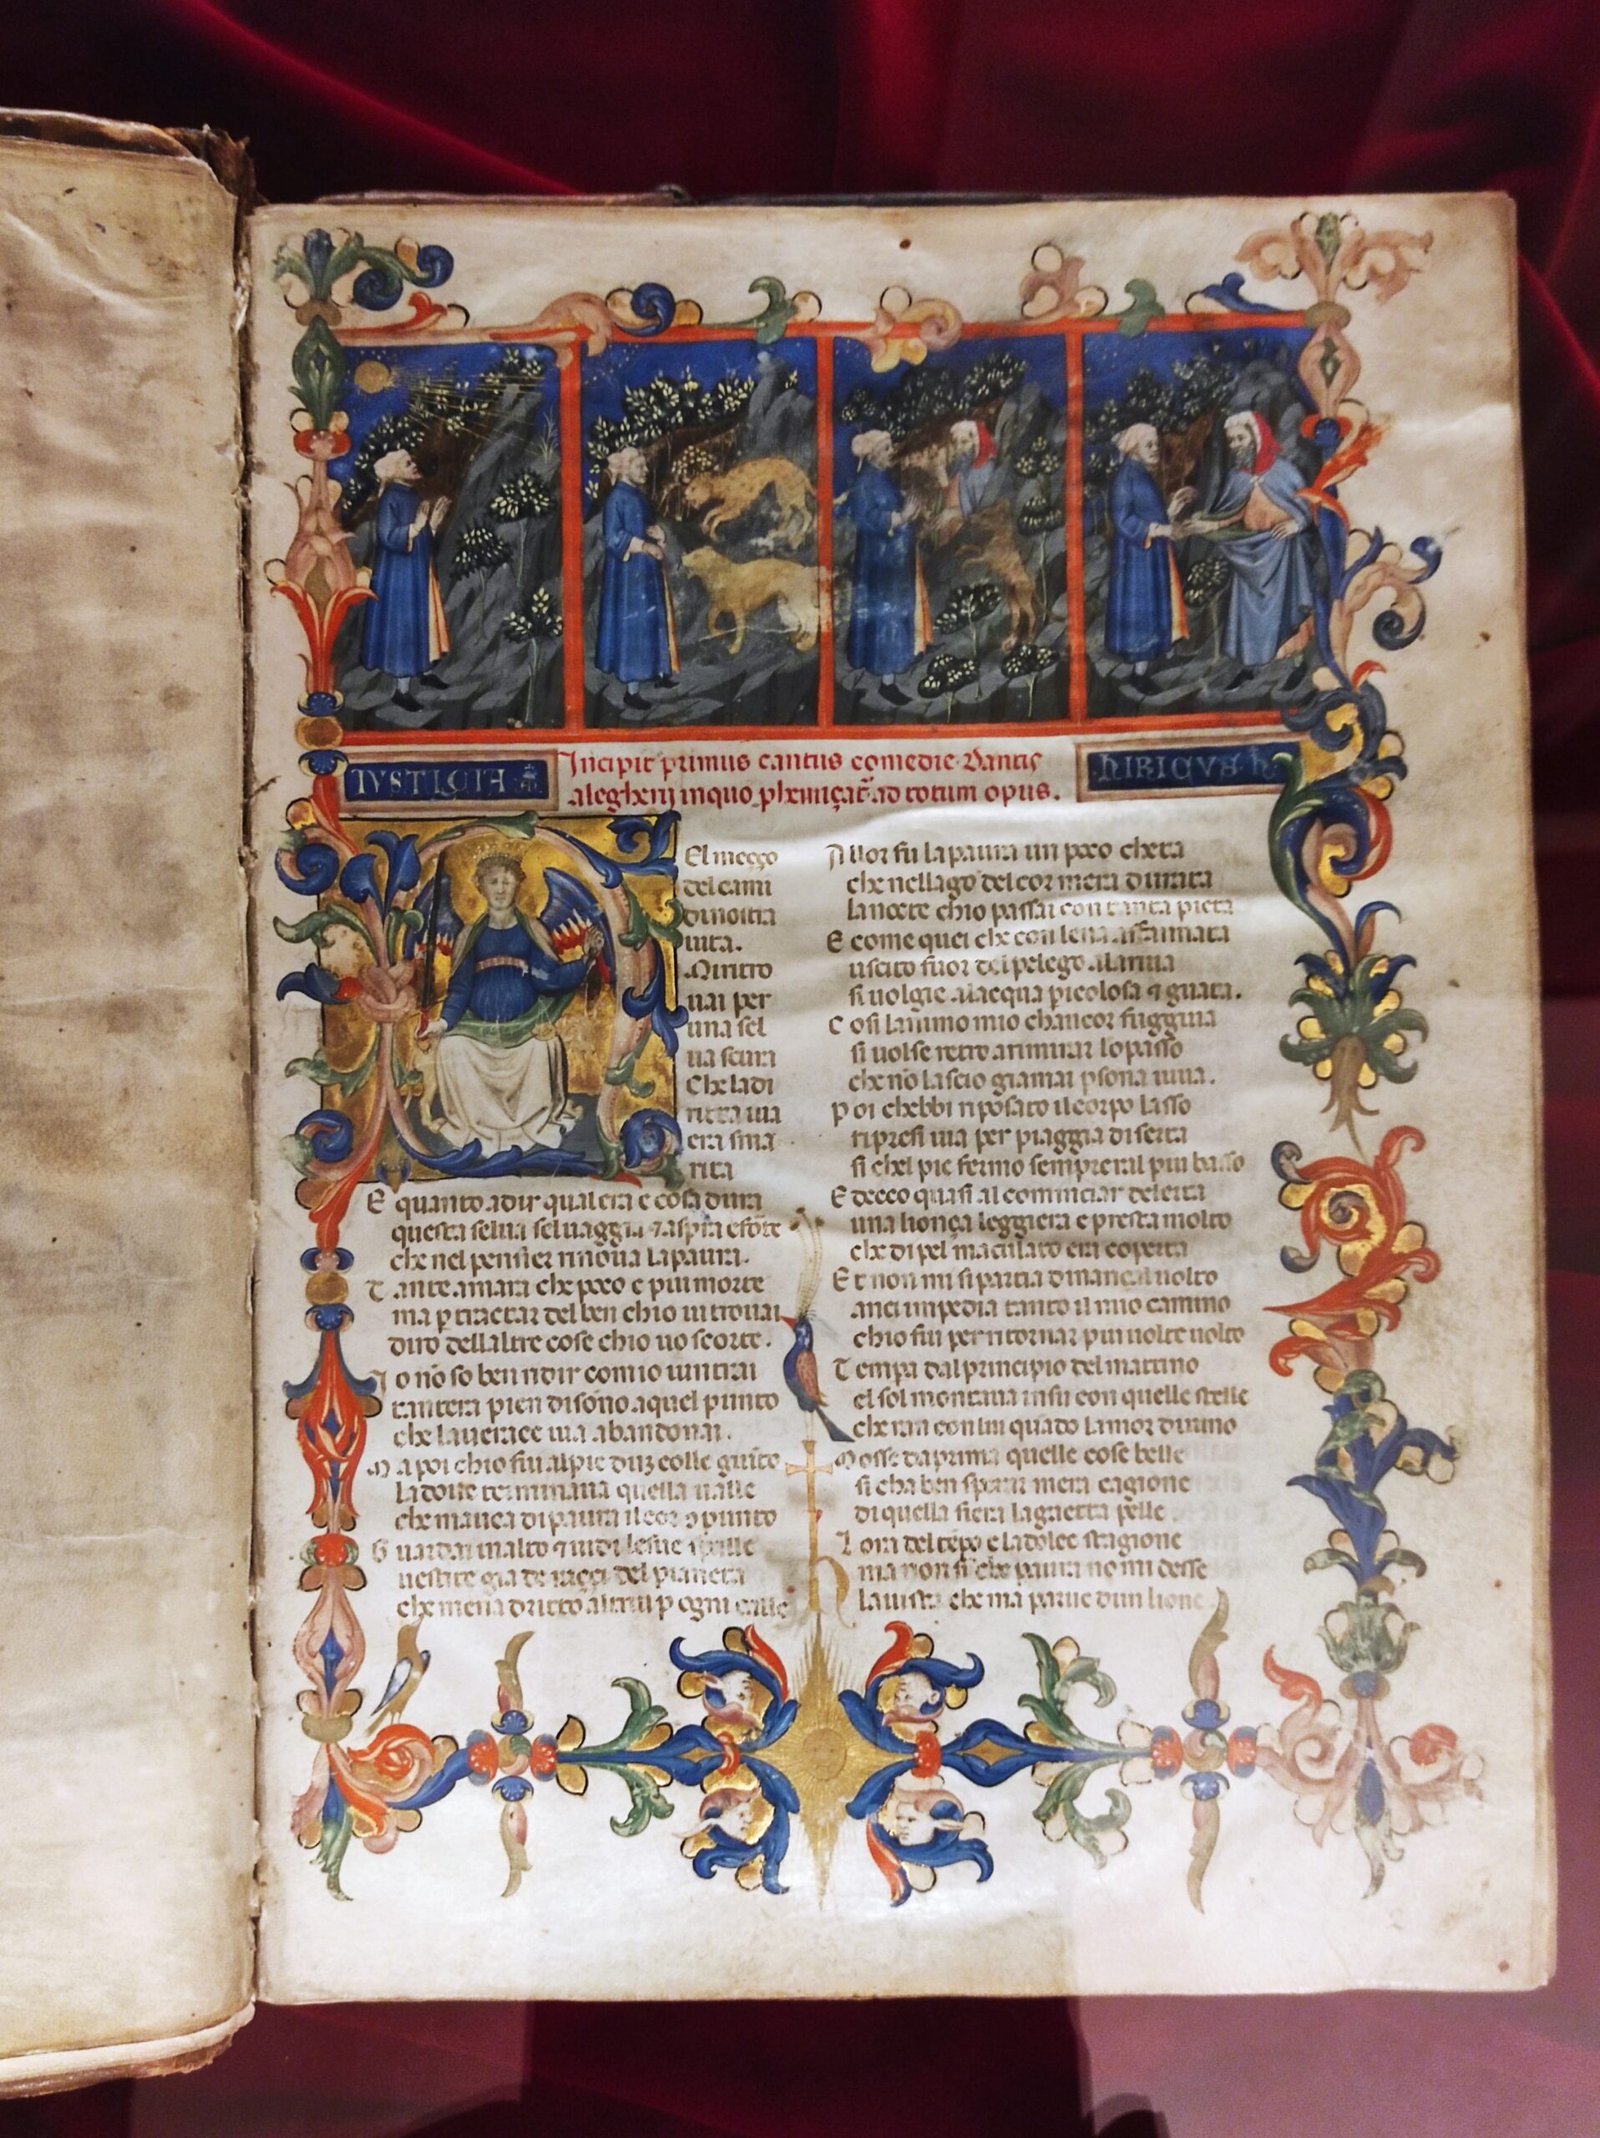 IVSTICIA
Incipit primus cantus comedie Dantis
alegherij in quo
ad totum opus.
El meçço
del cami
di nostra
uita.
Miritro
uai per
una sel
ua scura
Che la di
ritta uia
era sma
rita
E quanto adir qual era e cosa dura
questa selua seluaggia
che nel pensier rinoua la paura.
Tante amara che poco e piu morte
ma p tractar del ben chio ui trouai
diro dellaltre cose chio uo scorte.
Io nō so ben ridir comio uintrai
tantera pien di sōno aquel punto
che la uerace uia abandonai.
Ma poi chio fui al pie
colle
la doue terminaua quella ualle
che mauea di paura il cor
punto
Guardai in alto
uidi le sue spalle
uestite gia de raggi del pianeta
che mena dritto altrui p ogni calle
Allor fu la paura un poco cheta
che nel lago del cor mera durata
la nocte chio passai con tanta pieta
E come quei che con lena affannata
uscito fuor del pelego alariua
si uolgie alacqua
guata.
Cosi lanimo mio chancor fuggiua
si uolse retro arimirar lo passo
che nō lascio giamai psona uiua.
Poi chebbi riposato il corpo lasso
ripresi uia per piaggia diserta
si chel pie fermo sempre ral piu basso
Edecco quasi al cominciar delerta
una lionça leggiera e presta molto
che di pel maculato era coperta
Et non mi si partia dinançal uolto
anci impedia tanto il mio camino
chio fui per ritornar piu uolte uolto
Tempa dal principio del mattino
el sol montaua insu con quelle stelle
che ran con lui quādo lamor diuino
Mosse da prima quelle cose belle
si cha ben sperar mera cagione
di quella fiera la gaetta pelle
Lora del tēpo e la dolce stagione
ma non si che paura no mi desse
la uista che ma parue dun lione